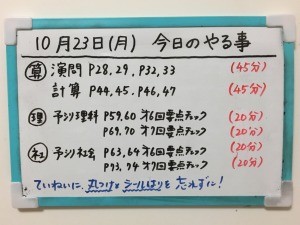 10月23日(月) 今日のやる事
算 演問 P28,29,P32,33 (45分)
計算 P44,45,P46,47 (45分)
理 予シリ理科 P59,60 オ6回要点チェック (20分)
P69,70 オ7回要点チェック (20分)
社 予シリ社会 P63,64 オ6回要点チェック (20分)
P73,74 オ7回要点チェック (20分)
ていねいに、丸つけとシールはりを忘れずに!